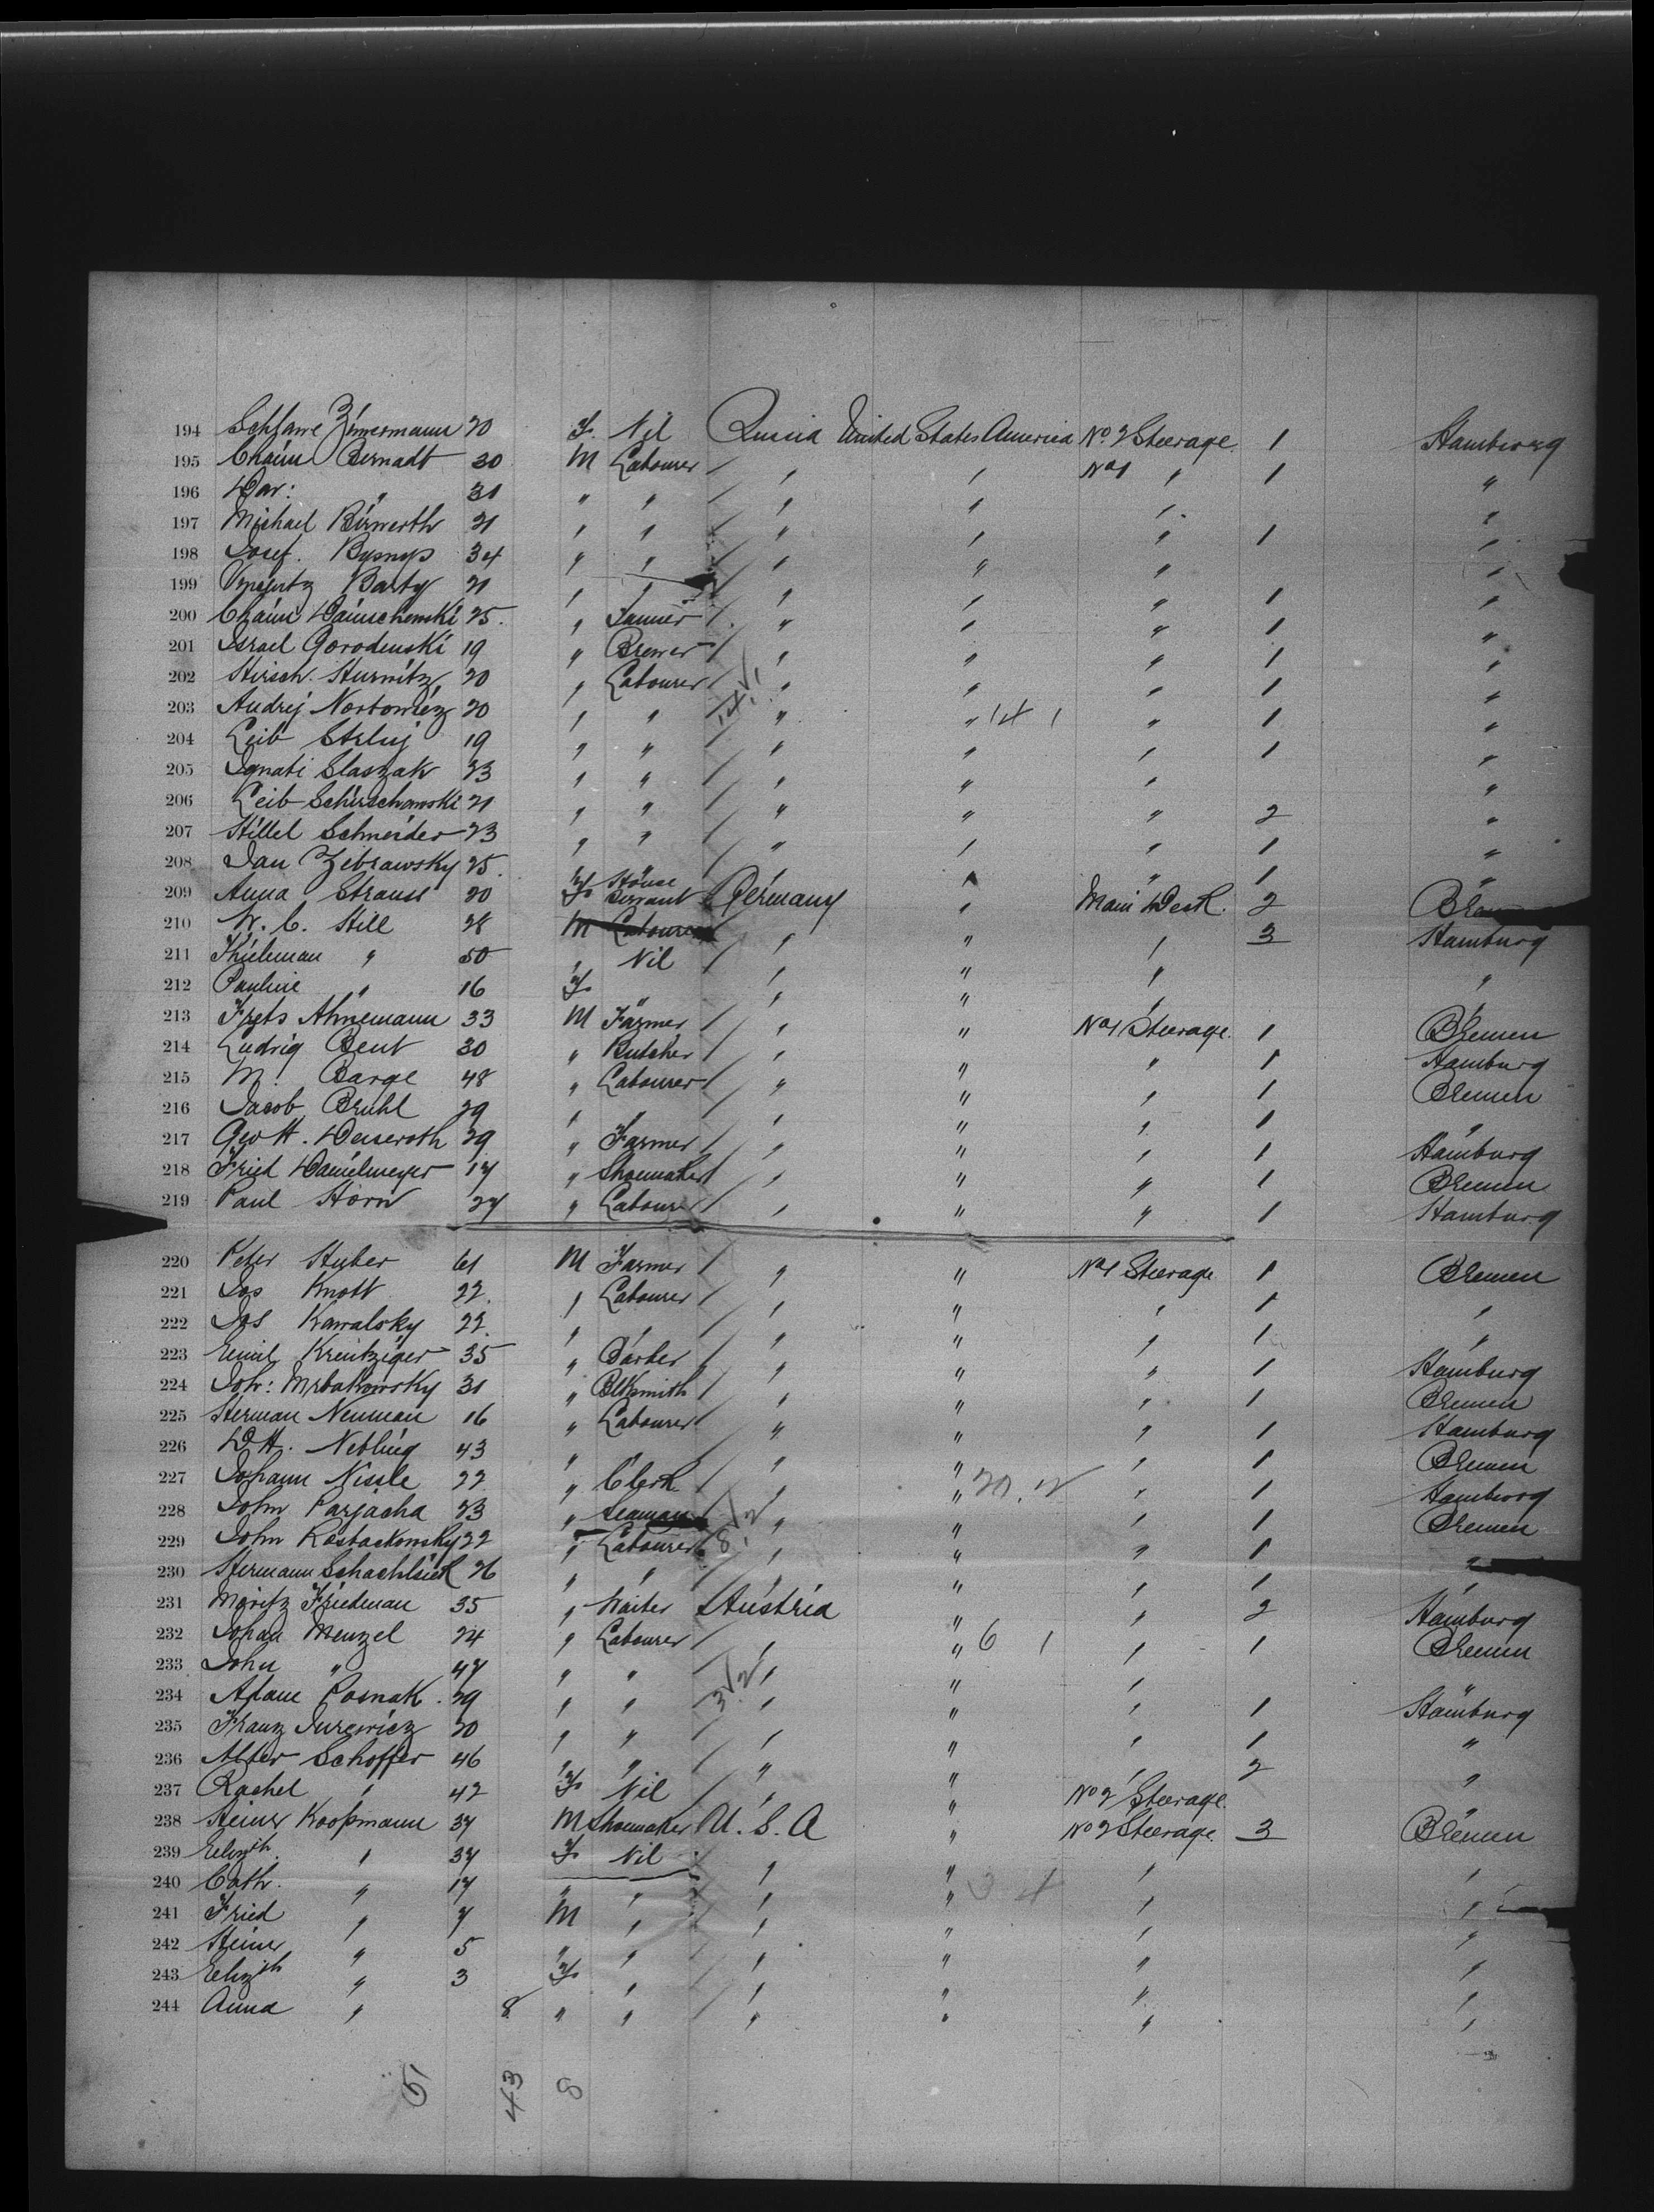 194 Schfame Zimermann 20 F. Nil Russia United States America No. 2 Steerage 1 Hamburg
195 Chaim Bernadt 30 M Labourer / " " No 1 " 1 "
196 " 31 " " / " " " "
197 Michael Birwerth 21 " " / " " " 1 "
198 Josef 34 " " / " " " "
199 Barty 21 " " / " " " 1 "
200 Chaim 25. " / " " " 1 "
201 Israel Gorodenski 19 " Brewer / " " " 1 "
202 Hirsch Hurwitz 20 " Labourer / " " " 1 "
203 Andrej Nortowicz 20 " " / 14.1 " " 14 1 " 1 "
204 Leib 19 " " / " " " 1 "
205 Ignati Slaszak 23 " " / " " " "
206 Leib Schirschawski 21 " " / " " " 2 "
207 Hillel Schneider 23 " " / " " " 1 "
208 Jan Zebrawsky 25. " " / " " " 1 "
209 Anna Strauss 20 F. House Servant Germany " Main Deck 2
210 W. C. Hill 28 M Labourer / " " " 3 Hamburg
211 " 50 " Nil / " " " "
212 Pauline " 16 F. " " " " "
213 Ahnemann 33 M Farmer / " " No 1 Steerage 1 Bremen
214 Ludvig Bent 30 " Butcher / " " " 1 Hamburg
215 M. Barge 48 " Labourer / " " " 1 Bremen
216 Jacob Bruhl 29 " " / " " " 1 "
217 Geo H. Deiseroth 29 " Farmer / " " " 1 Hamburg
218 Fried Danielmeyer 17 " Shoemaker / " " " 1 Bremen
219 Paul Horn 27 " Labourer / " " " 1 Hamburg
220 Peter Huber 61 M Farmer / " " No 1 Steerage 1 Bremen
221 Jos Knott 22. " Labourer / " " " 1 "
222 Jos Kawalsky 22. " " / " " " 1 "
223 Emil Kreutziger 35 " Barber / " " " 1 Hamburg
224 Joh: 31 " Blksmith / " " " 1 Bremen
225 Herman Neuman 16 " Labourer / " " " 1 Hamburg
226 D H. Nebling 43 " " / " " " 1 Bremen
227 Johann Nissle 22 " Clerk / " " 20.2 " 1 Hamburg
228 John Parjacha 23 " Seaman / " " " 1 Bremen
229 John Kostackowsky 22 " Labourer 18.2 " " " 1 "
230 Hermann Schachlsick 26 " " / " " " 1 "
231 Moritz Friedman 35 " Waiter Austria " " 2 Hamburg
232 Johan Menzel 24 " Labourer / " " 6 1 " 1 Bremen
233 John " 47 " " / " " "
234 Adam Posnak 29 " " 3.2 " " " 1 Hamburg
235 Franz Jurewicz 20 " " / " " " 1 "
236 Alter Schoffer 46 " " / " " " 2 "
237 Rachel " 42 F. Nil / " " No 2 Steerage "
238 Heinr Koopmann 37 M Shoemaker U. S. A " No 2 Steerage 3 Bremen
239 Elizth " 37 F. Nil / " " " "
240 Cath. " 17 " " / " " 3 4 " "
241 Fried " 7 M " / " " " "
242 Heinr " 5 " " / " " " "
243 Elizth " 3 F. " / " " " "
244 Anna " 8 " " / " " " "
51 43 8